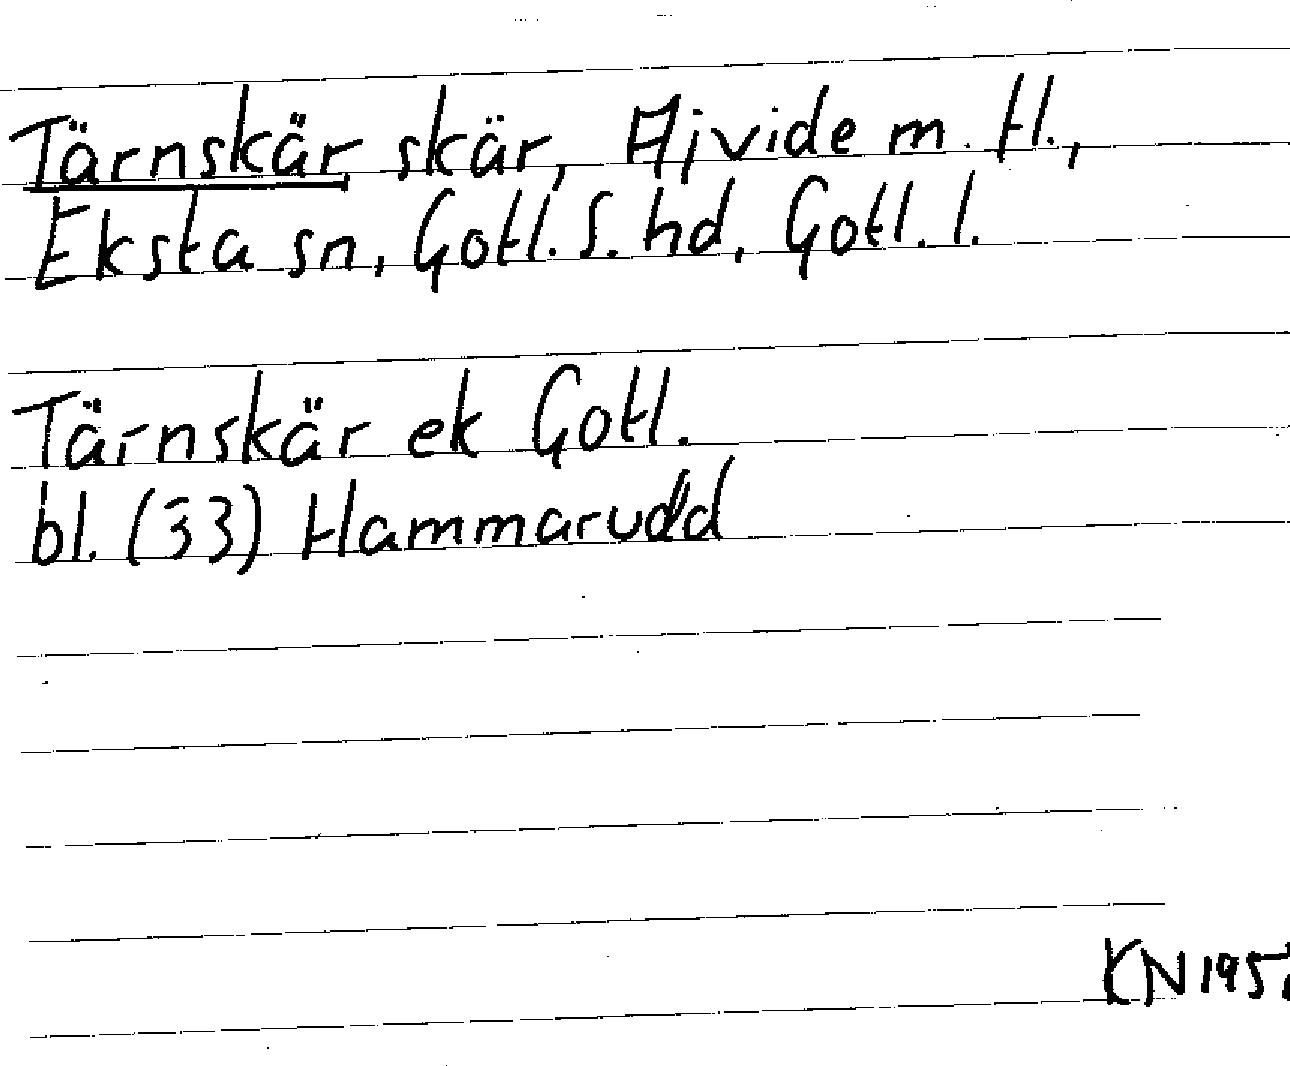 Tärnskär skär, Ajvide m. fl.,
Eksta sn, Gotl. S. hd, Gotl. l.
Tärnskär ek Gotl.
bl. (33) Hammarudd
KN